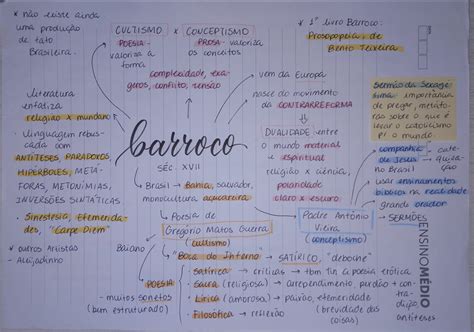 * não existe ainda
uma produção
de fato
Brasileira.
CULTISMO
POESIA - valoriza a
forma
* CONCEPTISMO
PROSA - valoriza
os conceitos
* 1º livro Barroco:
Prosopopeia, de
Bento Teixeira
complexidade, exa-
geros, conflito, tensão
vem da Europa
nasce do movimento
da CONTRARREFORMA
Literatura
enfatiza
religião x mundano
· linguagem rebus-
cada com
ANTÍTESES, PARADOXOS,
HIPÉRBOLES, META-
FORAS, METONÍMIAS,
INVERSÕES SINTÁTICAS
· Sinestesia, Efemerida-
des, "Carpe Diem"
* outros artistas
- Aleijadinho
barroco
SÉC. XVII
DUALIDADE entre
o mundo material
e espiritual
religião x ciência,
claro x escuro
Sermão da Sexagé-
sima: importância
de pregar, metáfo-
ras sobre o que é
levar o catolicismo
p/ o mundo.
companhia
de Jesus - cate-
quização
no Brasil
usar ensinamentos
bíblicos na realidade
grande orador
SERMÕES
Padre Antônio
Vieira
(conceptismo)
Brasil → Bahia, Salvador,
monocultura açucareira
Poesia de
Gregório Matos Guerra
(cultismo)
Baiano
"Boca do Inferno" → SATÍRICO, "deboche"
POESIA
- muitos sonetos
(bem estruturado)
· satírica → críticas → tbm tin a poesia erótica
· Sacra (religiosa) → arrependimento, perdão + con-
tradição,
antíteses
· Lírica (amorosa) → paixão, efemeridade
(brevidade das
coisas)
· Filosófica → reflexão
ENSINO MÉDIO